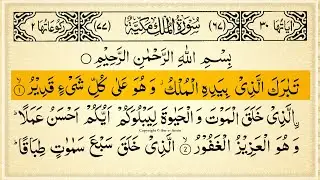 اٰیَاتُهَا ٣٠ (٦٧) سُوْرَةُ الْمُلْكِ مَكِّیَّةٌ (٧٧) رُكُوْعَاتُهَا ٢
بِسْمِ اللّٰهِ الرَّحْمٰنِ الرَّحِیْمِ
تَبٰرَكَ الَّذِیْ بِیَدِهِ الْمُلْكُ وَ هُوَ عَلٰی كُلِّ شَیْءٍ قَدِیْرُ ۙ ١
اۨلَّذِیْ خَلَقَ الْمَوْتَ وَ الْحَیٰوةَ لِیَبْلُوَكُمْ اَیُّكُمْ اَحْسَنُ عَمَلًا ؕ
وَ هُوَ الْعَزِیْزُ الْغَفُوْرُ ۙ ٢ الَّذِیْ خَلَقَ سَبْعَ سَمٰوٰتٍ طِبَاقًا ؕ